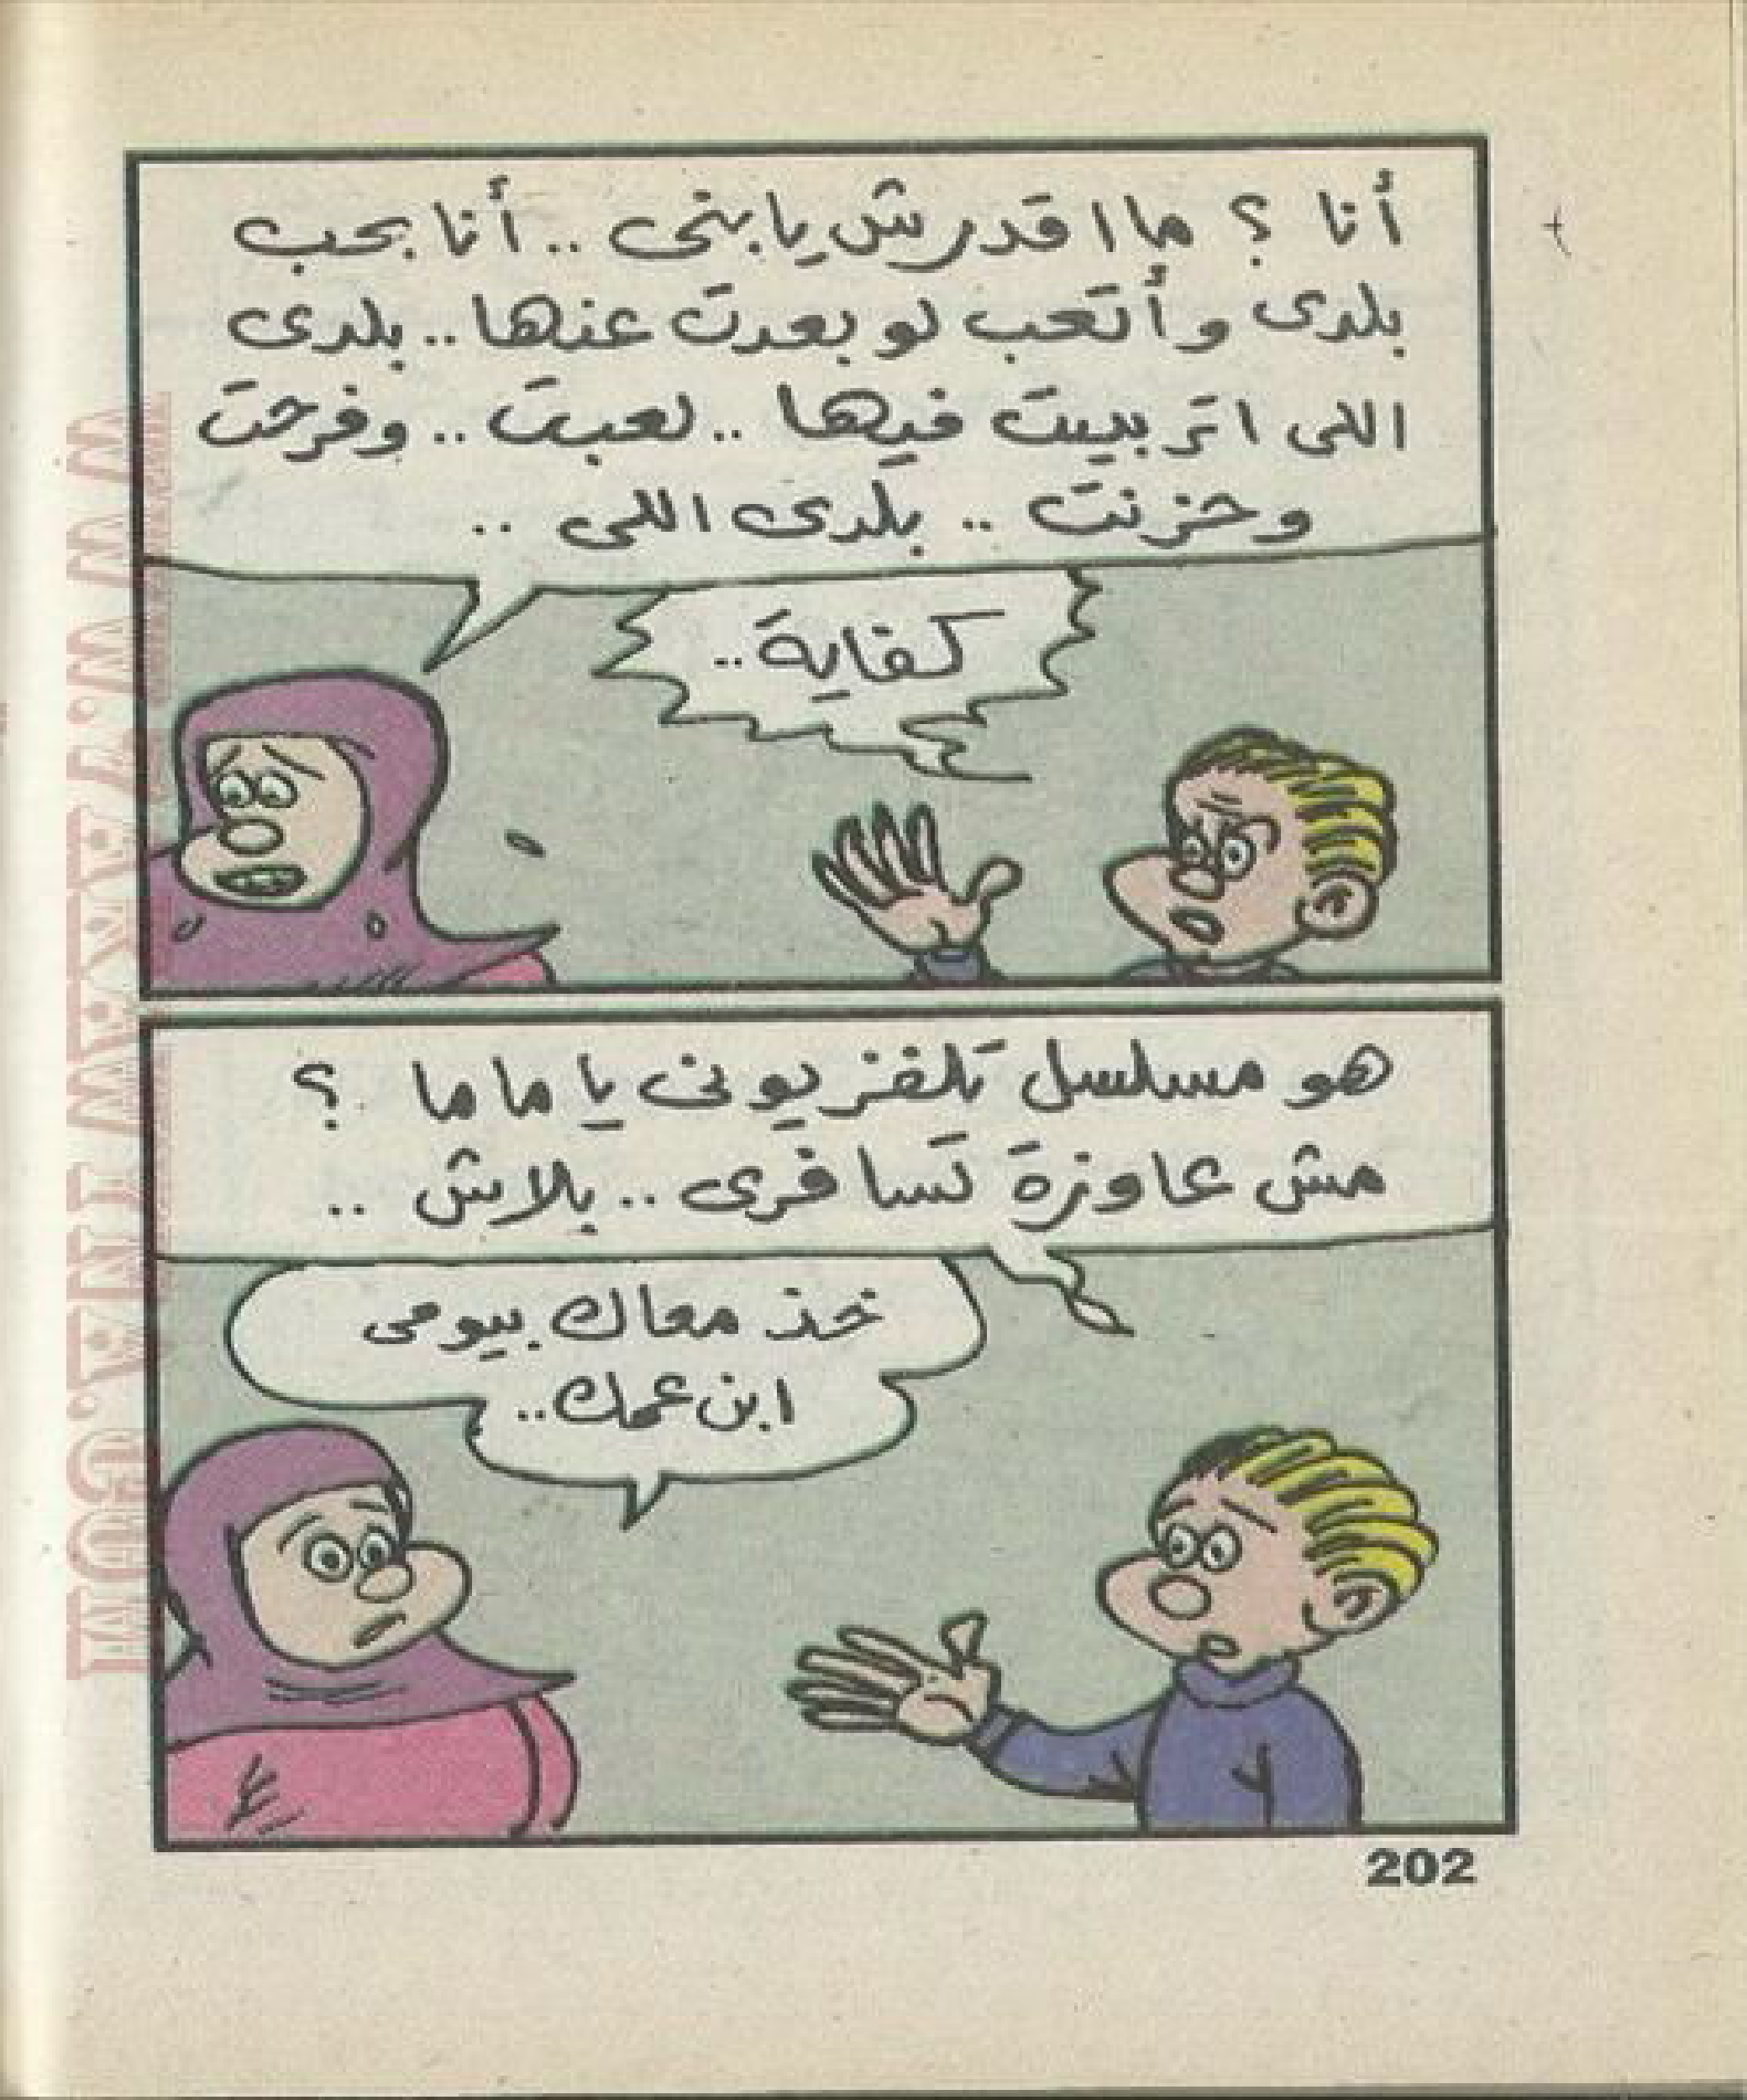 أنا ؟ ما اقدرش يا بنى .. أنا بحب
بلدى وأتعب لو بعدت عنها .. بلدى
اللى اتربيت فيها .. لعبت .. وفرحت
وحزنت .. بلدى اللى ..
كفاية ..
هو مسلسل تلفزيونى يا ماما ؟
مش عاوزة تسافرى .. بلاش ..
خد معاك بيومى
ابن عمك ..
202